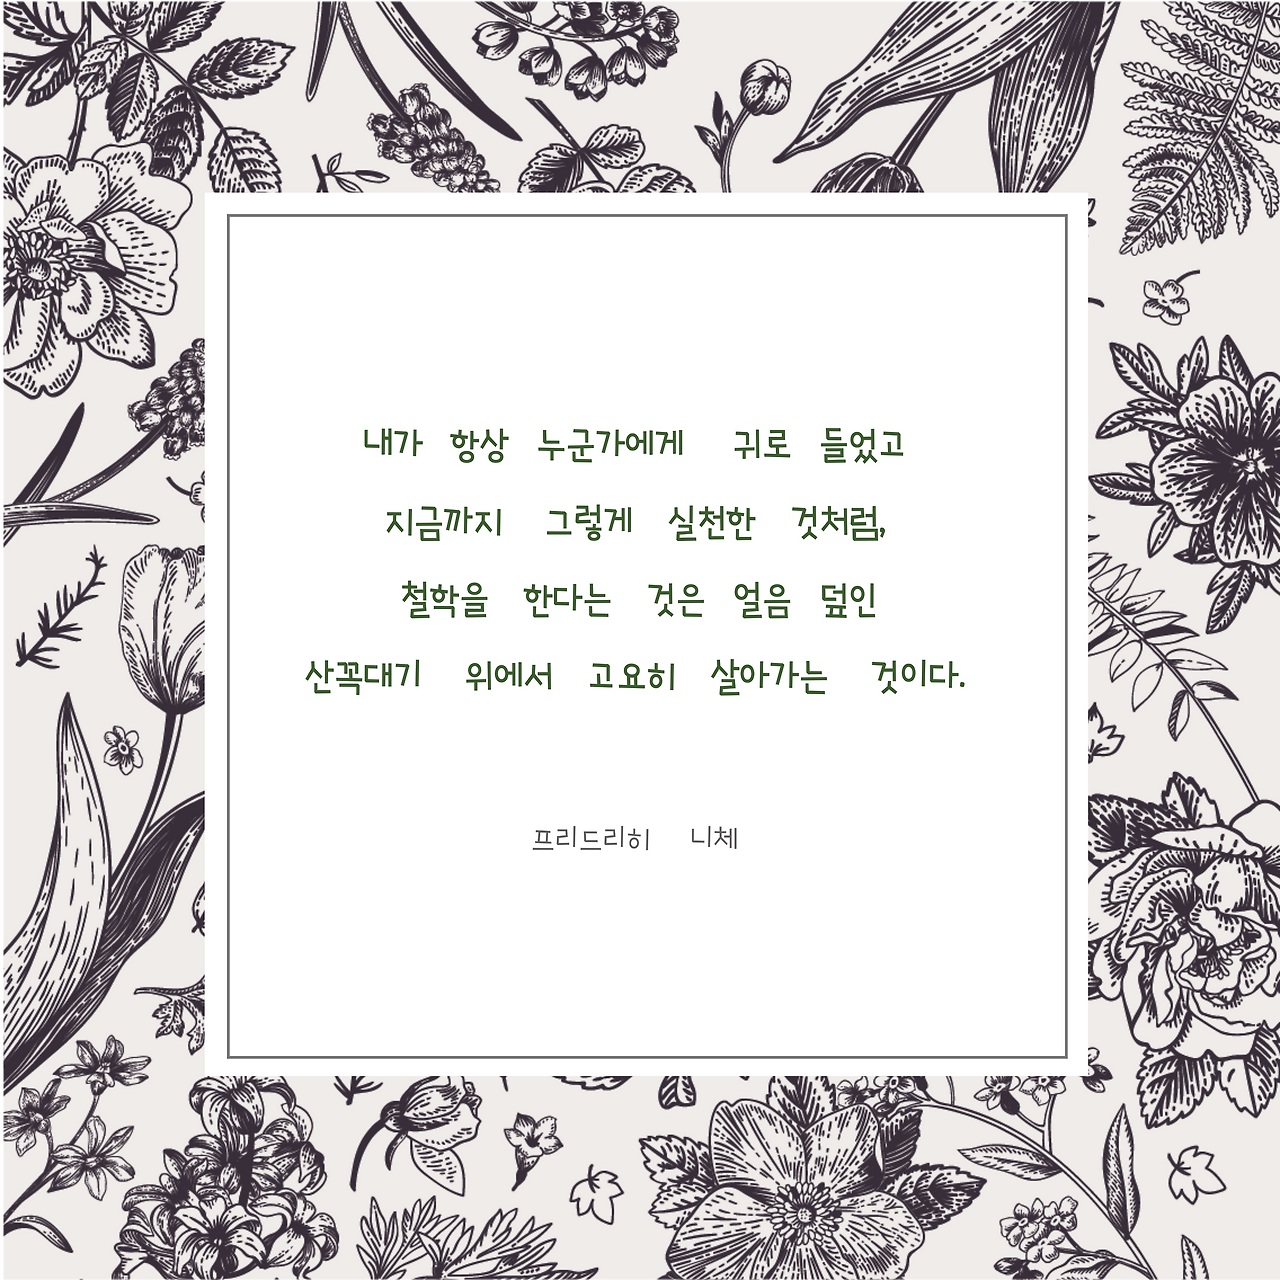 내가 항상 누군가에게 귀로 들었고
지금까지 그렇게 실천한 것처럼,
철학을 한다는 것은 얼음 덮인
산꼭대기 위에서 고요히 살아가는 것이다.
프리드리히 니체